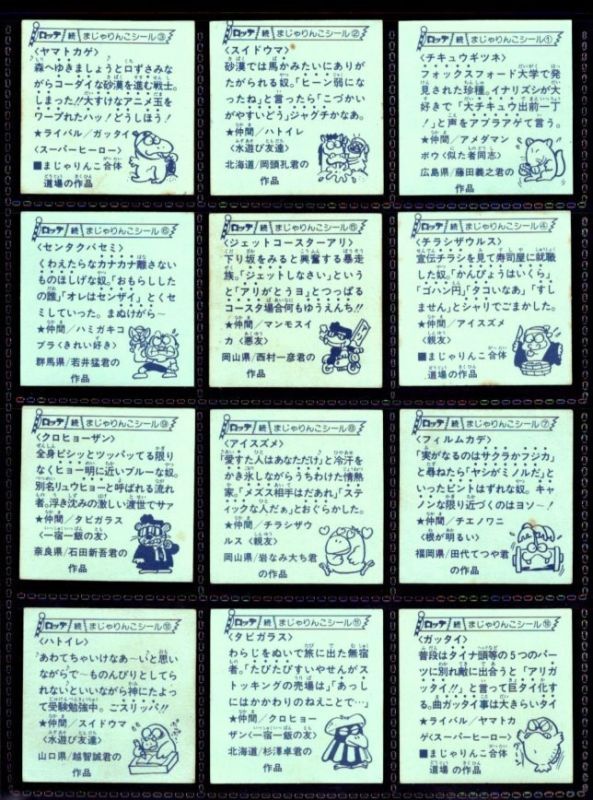 ロッテ 続 まじゃりんこシール③
〈ヤマトカゲ〉
森へゆきましょうと口ずさみな
がらコーダイな砂漠を進む戦士。
しまった!!大すけなアニメ玉を
ワープれたハッ!どうしほう!
★ライバル/ガッタイ
〈スーパーヒーロー〉
■まじゃりんこ合体
道場の作品
ロッテ 続 まじゃりんこシール②
〈スイドウマ〉
砂漠では馬かみたいにありが
たがられる奴。「ヒーン弱に
なったね」と言ったら「こづかい
がやすいどう」ジャグチかなあ。
★仲間/ハトイレ
〈水遊び友達〉
北海道/岡頭孔君の
作品
ロッテ 続 まじゃりんこシール①
〈チキュウギツネ〉
フォックスフォード大学で発
見された珍種。イナリズシが大
好きで「大チキュウ出前一丁
!」と声をアブラアゲて言う。
★仲間/アメダマン
ボウ〈似た者同志〉
広島県/藤田義之君の
作品
ロッテ 続 まじゃりんこシール⑥
〈センタクバセミ〉
くわえたらなカナカナ離さない
ものほしげな奴。「おもらしした
の誰」「オレはセンザイ」とくセ
ミしていった。まぬけがら〜
★仲間/ハミガキコ
ブラ〈きれい好き〉
群馬県/若井猛君の
作品
ロッテ 続 まじゃりんこシール⑤
〈ジェットコースターアリ〉
下り坂をみると興奮する暴走
族。「ジェットしなさい」という
と「アリがとうヨ」とつっぱる
コースタ場合何もゆうえんち!!
★仲間/マンモスイ
カ〈悪友〉
岡山県/西村一彦君の
作品
ロッテ 続 まじゃりんこシール④
〈チラシザウルス〉
宣伝チラシを見て寿司屋に就職
した奴。「かんぴょうはいくら」
「ゴハン円」「タコいなあ」「すし
ません」とシャリでごまかした。
★仲間/アイスズメ
〈親友〉
■まじゃりんこ合体
道場の作品
ロッテ 続 まじゃりんこシール⑨
〈クロヒョーザン〉
全身ビシッとツッパッてる限り
なくヒョー明に近いブルーな奴。
別名リュウヒョーと呼ばれる流れ
者。浮き沈みの激しい渡世でサァ
★仲間/タビガラス
〈一宿一飯の友〉
奈良県/石田新吾君の
作品
ロッテ 続 まじゃりんこシール⑧
〈アイスズメ〉
「愛すた人はあなただけ」と冷汗を
かき氷しながらうちわけた情熱
家。「メズス相手はだあれ」「ステ
ィックな人だぁ」とおぐらかした。
★仲間/チラシザウ
ルス〈親友〉
岡山県/岩なみ大ち君
の作品
ロッテ 続 まじゃりんこシール⑦
〈フィルムカデ〉
「実がなるのはサクラかフジカ」
と尋ねたら「ヤシがミノルだ」と
いったピントはずれな奴。キャ
ノンな限り近づくのはヨソ〜!
★仲間/チエノワニ
〈根が明るい〉
福岡県/田代てつや君
の作品
ロッテ 続 まじゃりんこシール⑫
〈ハトイレ〉
あわてちゃいけなあ〜いと思い
ながらで〜ものんびりとしてら
れないといいながら神にたよ
って受験勉強中。ごスリッパ!!
★仲間/スイドウマ
〈水遊び友達〉
山口県/越智誠君の
作品
ロッテ 続 まじゃりんこシール⑪
〈タビガラス〉
わらじをぬいで旅に出た無宿
者。「たびたびすいやせんがス
トッキングの売場は」「あっし
にはかかわりのねえことで…」
★仲間/クロヒョー
ザン〈一宿一飯の友〉
北海道/杉澤卓君の
作品
ロッテ 続 まじゃりんこシール⑩
〈ガッタイ〉
普段はタイナ頭等の5つのパー
ツに別れ敵に出合うと「アリガ
ッタイ!!」と言って巨タイ化す
る。曲ガッタイ事は大きらいタイ
★ライバル/ヤマトカ
ゲ〈スーパーヒーロー〉
■まじゃりんこ合体
道場の作品